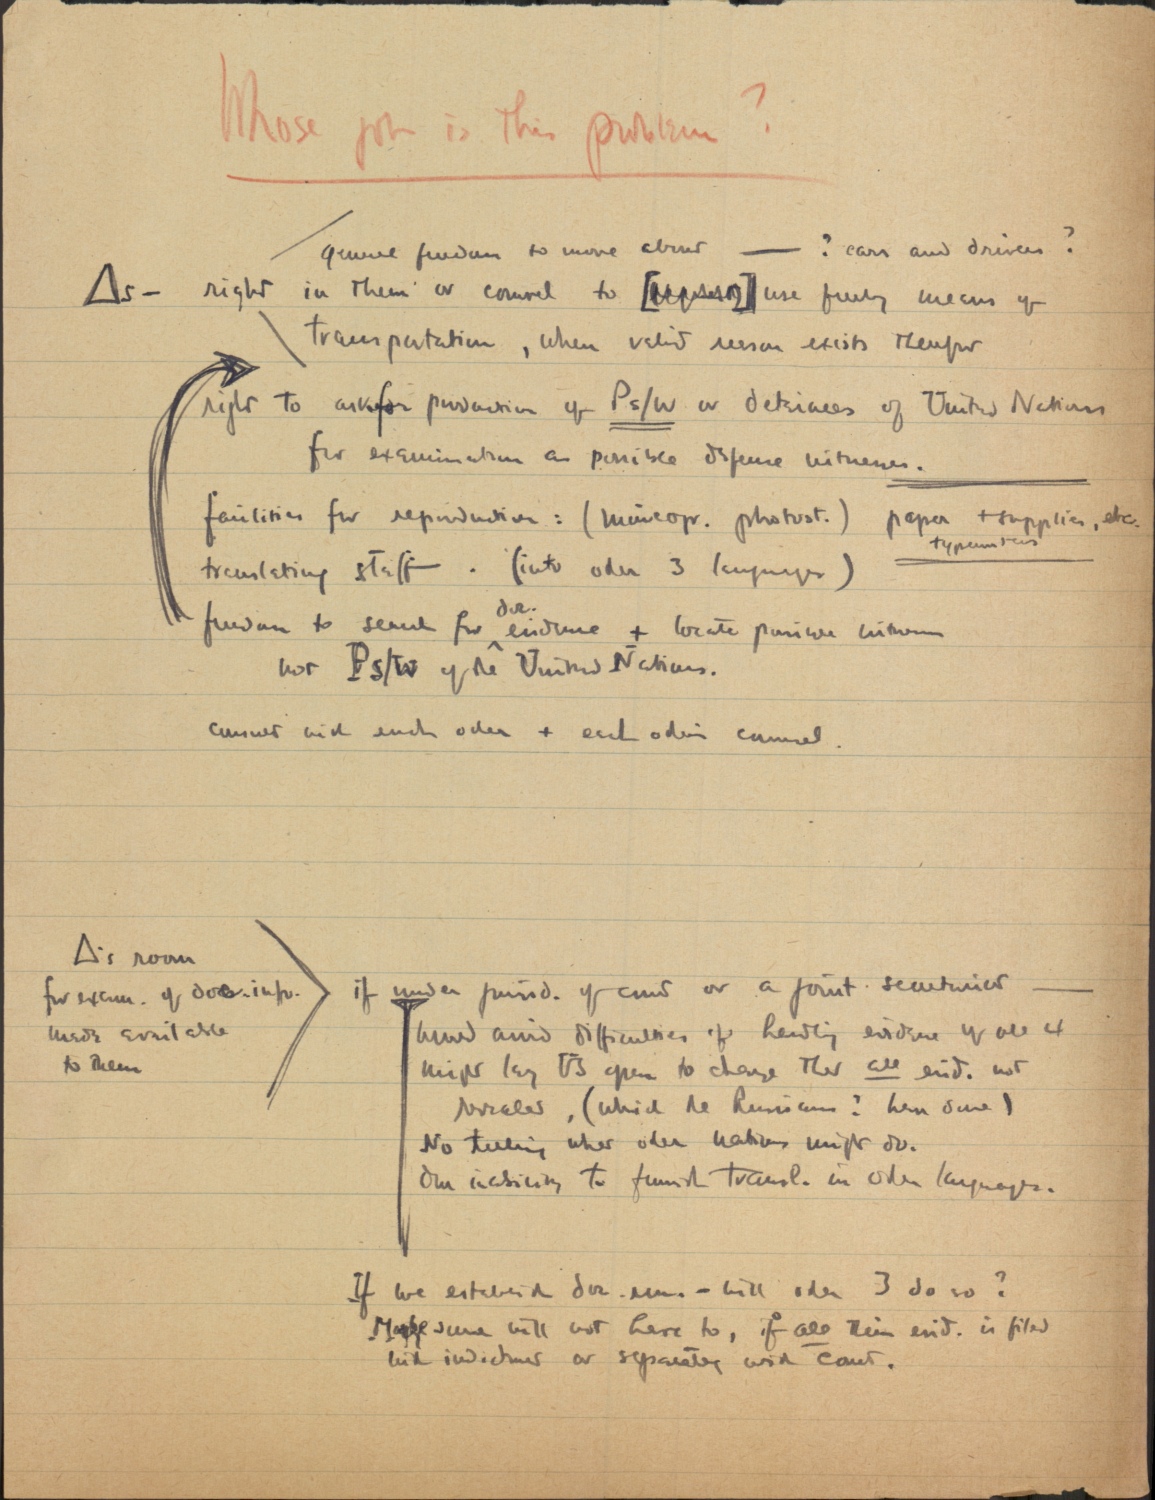 Whose job is this problem?
general freedom to move about — ? cars and drivers?
Δs — right in them or counsel to [ ] use freely means of
transportation, when valid reason exists therefor
right to ask for production of Ps/W or detainees of United Nations
for examination as possible defense witnesses.
facilities for reproduction: (mimeogr. photost.) paper + supplies, etc.
typewriters
translating staff. (into other 3 languages)
doc.
freedom to search for evidence + locate possible witnesses
not Ps/W of the United Nations.
consult with each other + each other's counsel.
Δ's room
for exam. of doc. info.
made available
to them
if under jurisd. of court or a joint secretariat —
would avoid difficulties of handling evidence of all 4
might lay US open to charge that all evid. not
revealed, (which the Russians? have done)
No telling what other nations might do.
Our inability to furnish transl. in other languages.
If we establish doc. rm. - will other 3 do so?
Maybe some will not have to, if all their evid. is filed
with indictment or separately with Court.